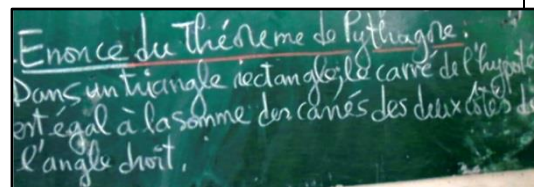 Enoncé du théorème de Pythagore:
Dans un triangle rectangle, le carré de l'hypoté
est égal à la somme des carrés des deux côtés d
l'angle droit.